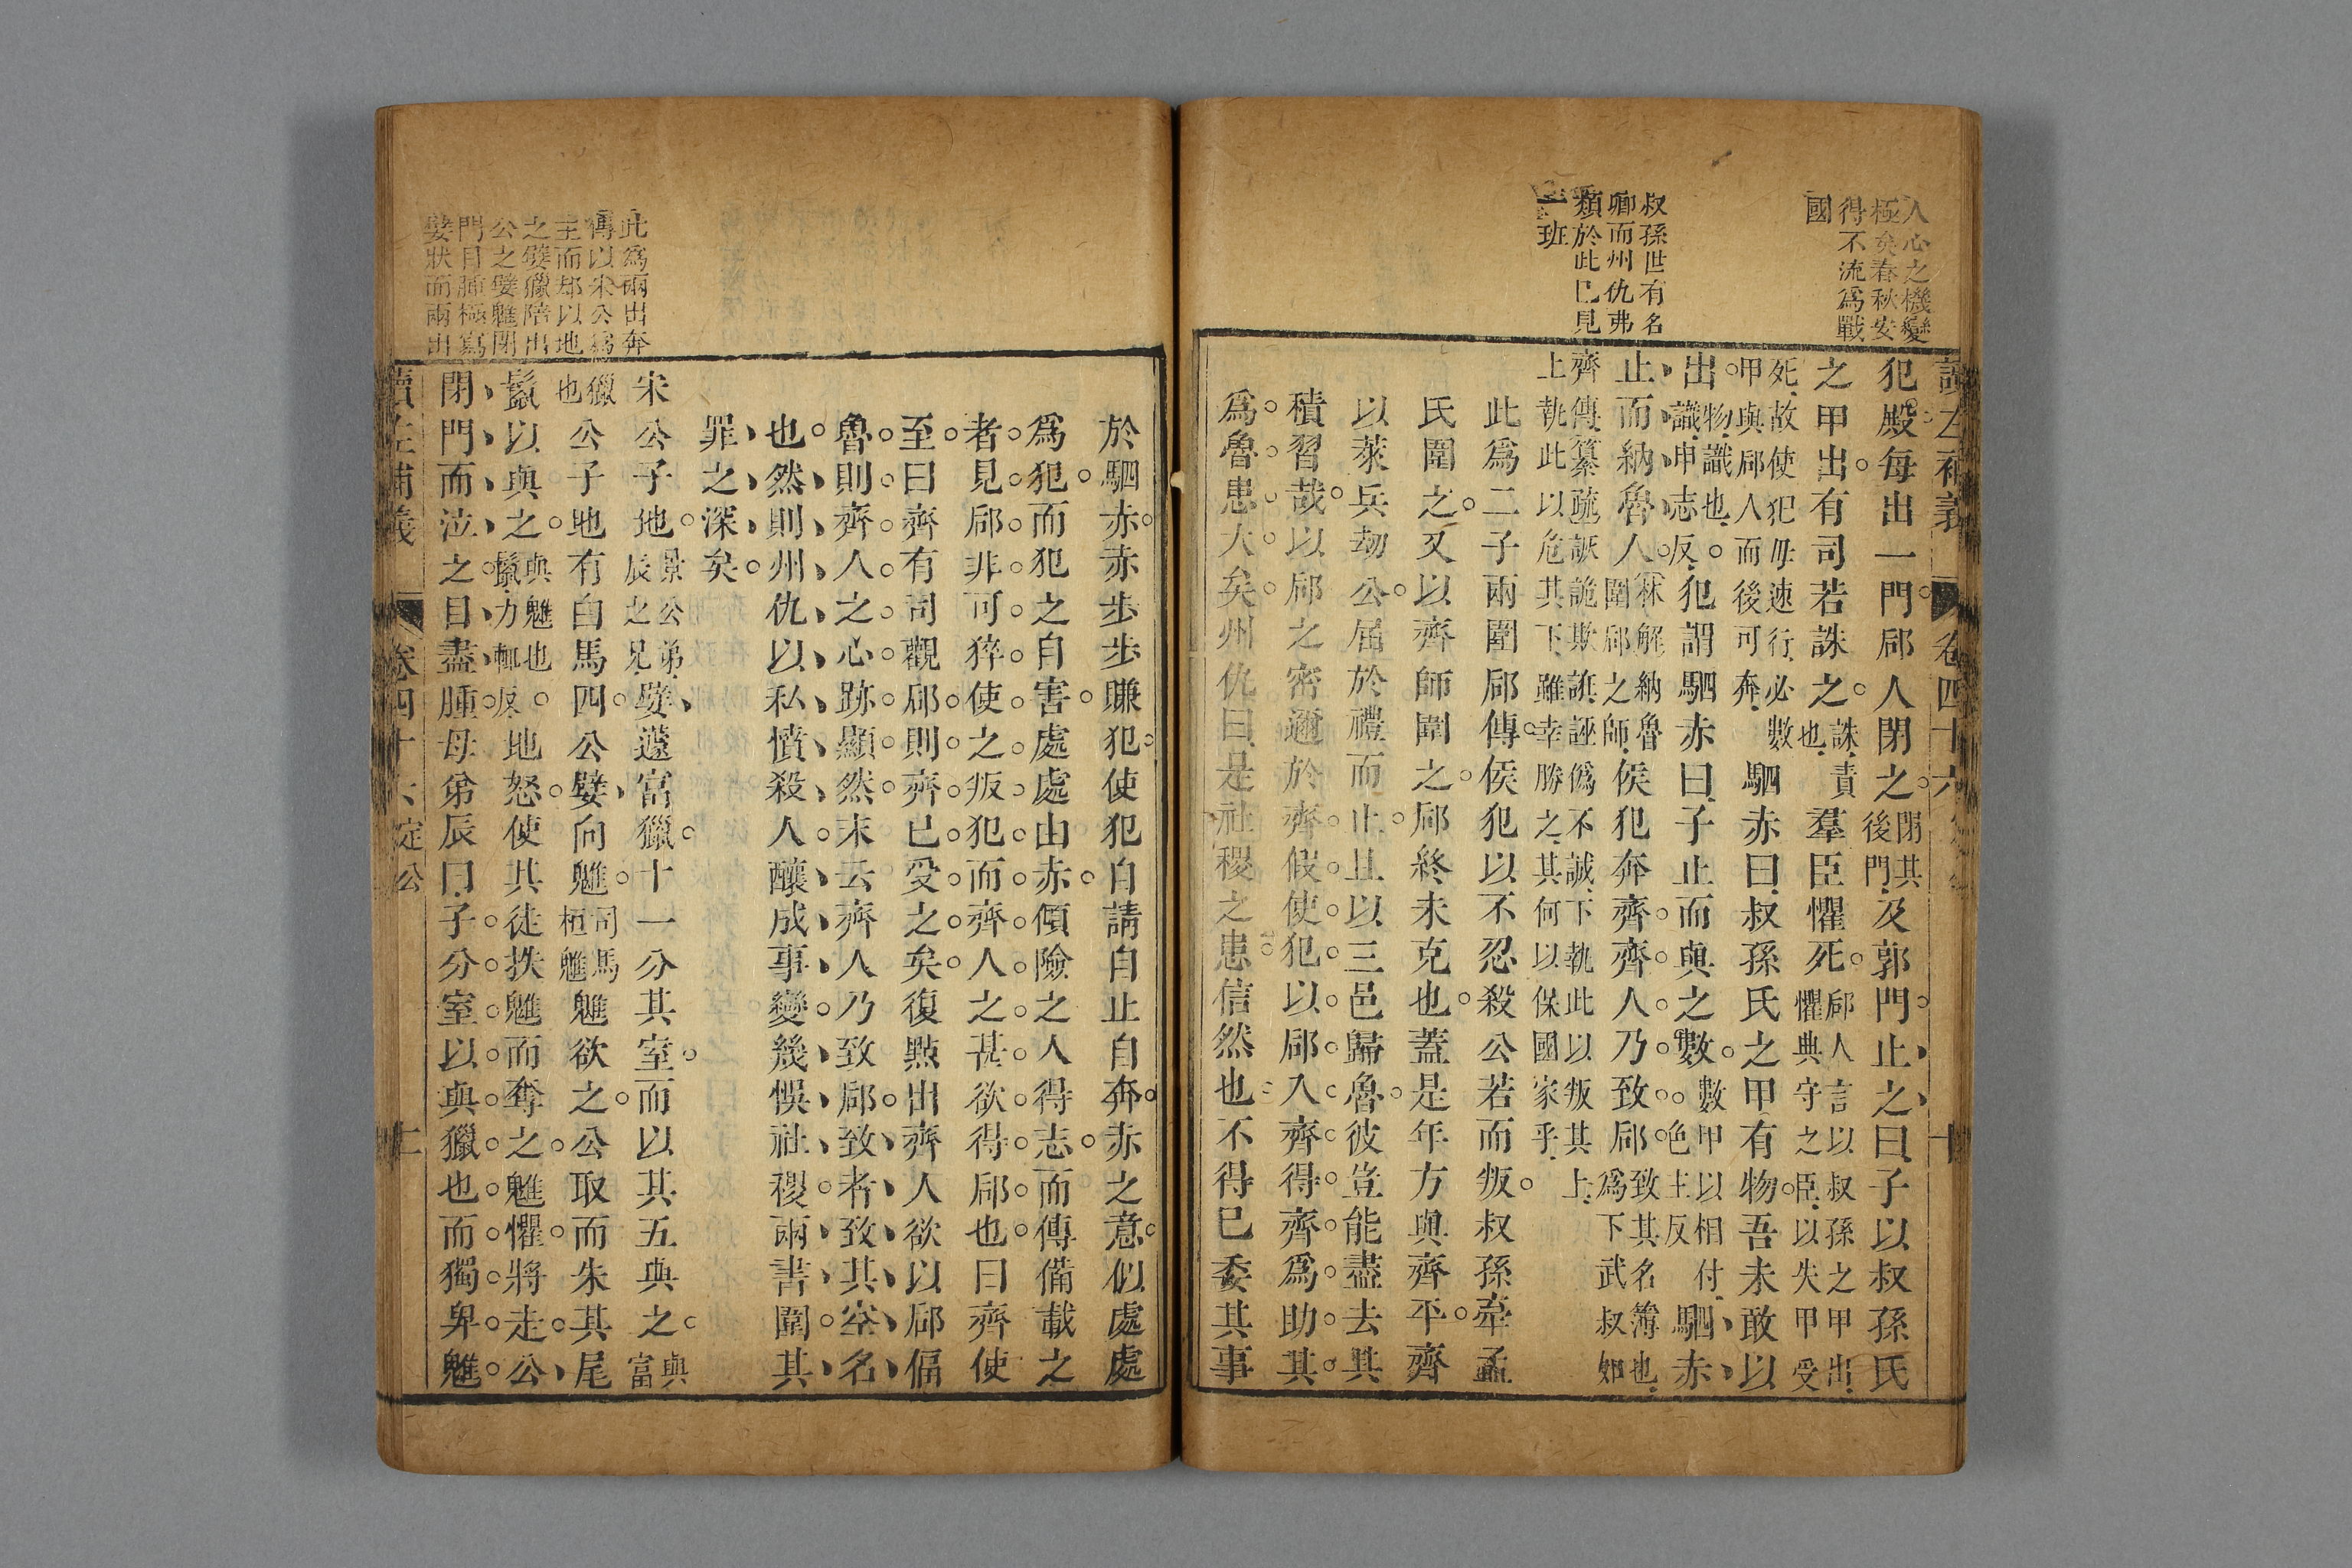 讀左補義
卷四十六
十
人心之機變
極矣春秋安
得不流爲戰
國
叔孫世有名
卿而州仇弗
類於此已見
一班
犯殿每出一門郈人閉之閉其後門及郭門止之曰子以叔孫氏
之甲出有司若誅之誅責也羣臣懼死郈人言以叔孫之甲出懼典守之臣以失甲受
死故使犯毋速行必數甲與郈人而後可奔駟赤曰叔孫氏之甲有物吾未敢以
出物識也識申志反犯謂駟赤曰子止而與之數數甲以相付色主反駟赤
止而納魯人林解納魯圍郈之師侯犯奔齊齊人乃致郈致其名簿也爲下武叔如
齊傳纂疏厭詭欺誑誣僞不誠下執此以叛其上上執此以危其下雖幸勝之其何以保國家乎
此爲二子兩圍郈傳侯犯以不忍殺公若而叛叔孫牽孟
氏圍之又以齊師圍之郈終未克也蓋是年方與齊平齊
以萊兵劫公屈於禮而止且以三邑歸魯彼豈能盡去其
積習哉以郈之密邇於齊假使犯以郈入齊得齊爲助其
爲魯患大矣州仇曰是社稷之患信然也不得已委其事
於駟赤赤步步賺犯使犯自請自止自奔赤之意似處處
爲犯而犯之自害處處由赤傾險之人得志而傳備載之
者見郈非可猝使之叛犯而齊人之甚欲得郈也曰齊使
至曰齊有司觀郈則齊已受之矣復點出齊人欲以郈偪
魯則齊人之心跡顯然末云齊人乃致郈致者致其空名
也然則州仇以私憤殺人釀成事變幾悞社稷兩書圍其
罪之深矣
此爲兩出奔
傳以宋公爲
主而却以地
之嬖獵陪出
公之嬖魋閉
門目腫極寫
嬖狀而兩出
宋公子地景公弟辰之兄嬖蘧富獵十一分其室而以其五與之與富
獵也公子地有白馬四公嬖向魋司馬桓魋魋欲之公取而朱其尾
鬣以與之與魋也鬣力輒反地怒使其徒抶魋而奪之魋懼將走公
閉門而泣之目盡腫母弟辰曰子分室以與獵也而獨卑魋
讀左補義
卷四十六定公
十一